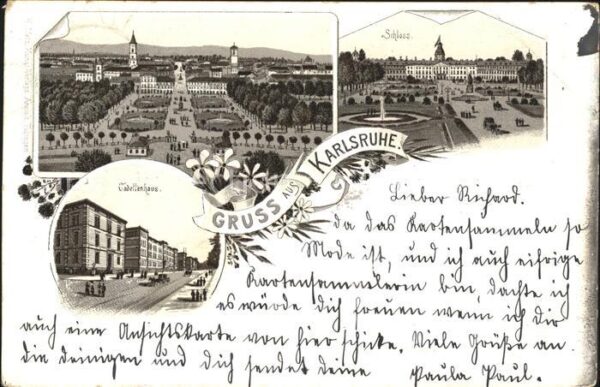 Schloss.
GRUSS AUS KARLSRUHE.
Cadettenhaus.
Lieber Richard.
da das Kartensammeln so
Mode ist, und ich auch eifrige
Kartensammlerin bin, dachte ich
es würde dich freuen wenn ich dir
auch eine Ansichtskarte von hier schicke. Viele Grüße an
die deinigen und dich sendet deine
Paula Paul.